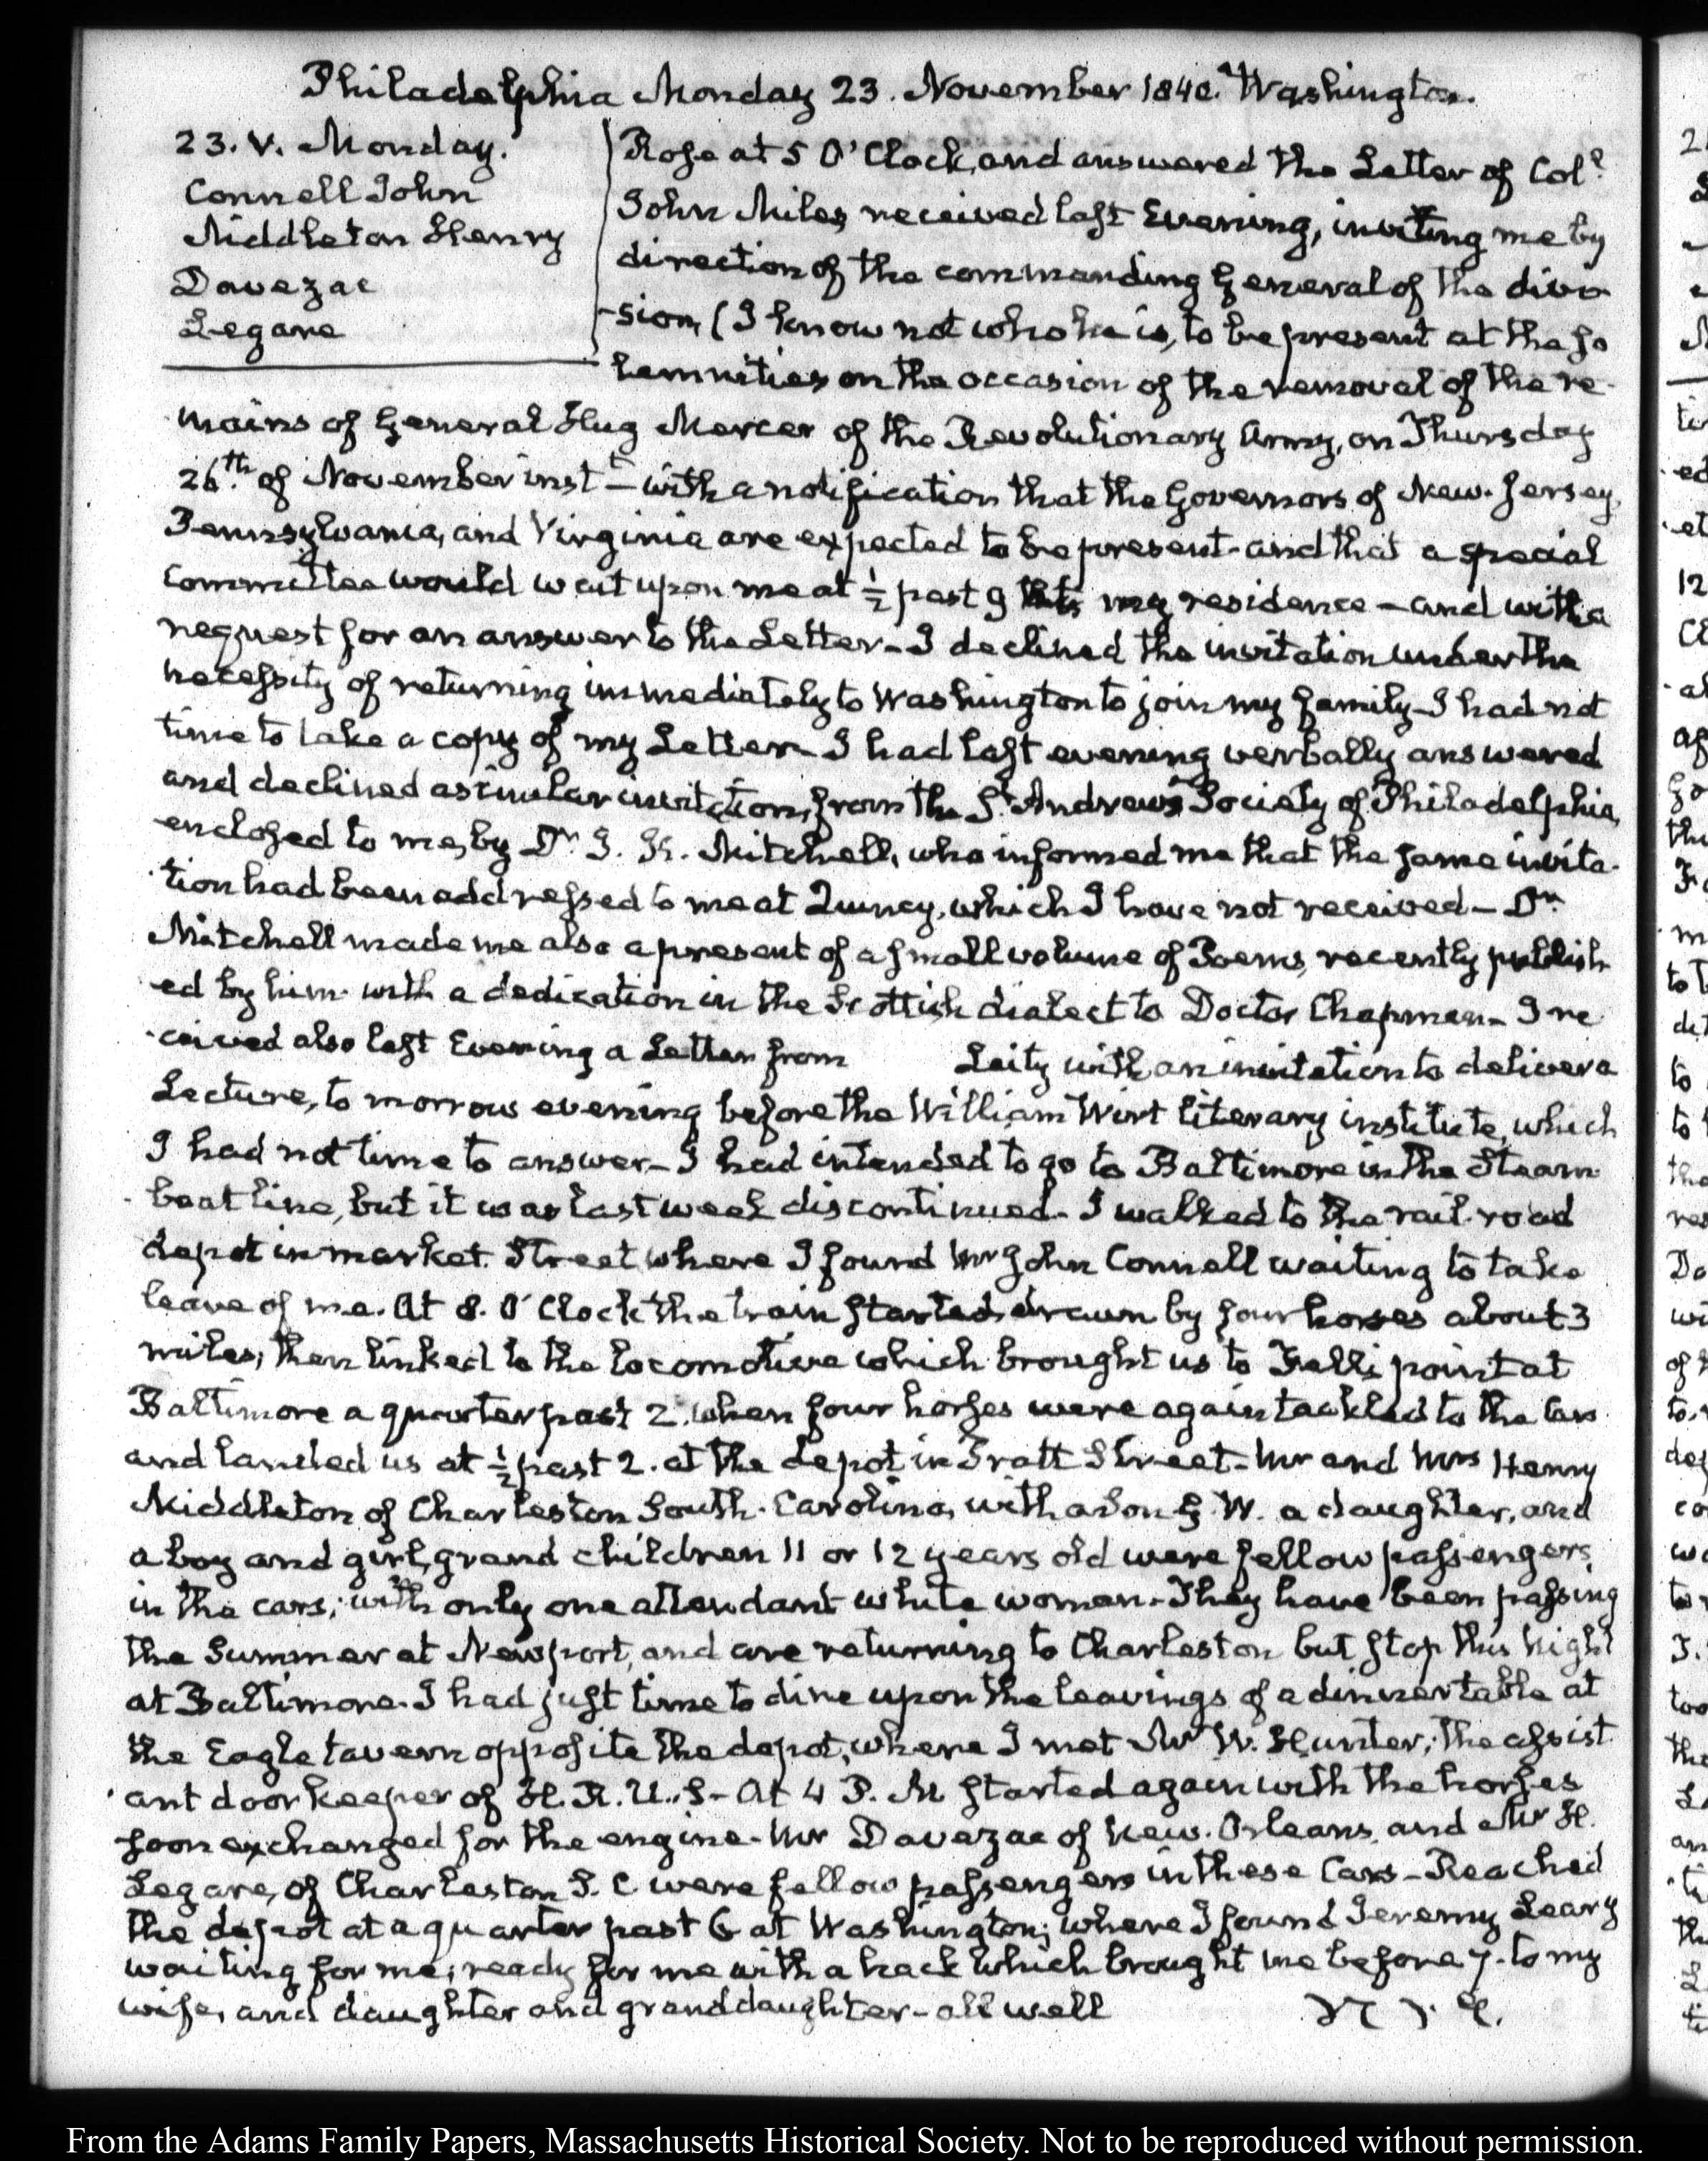 Philadelphia Monday 23. November 1840. Washington.
23. V. Monday.
Connell John
Middleton Henry
Davezac
Legare
Rose at 5 O'Clock, and answered the Letter of Col.
John Miles received last Evening, inviting me by
direction of the commanding General of the divi-
-sion, (I know not who he is, to be present at the so
lemnities on the occasion of the removal of the re-
mains of General Hug Mercer of the Revolutionary Army, on Thursday
26.th of November inst.t — with a notification that the Governors of New-Jersey,
Pennsylvania, and Virginia are expected to be present - and that a special
Committee would wait upon me at ½ past 9 my residence - and with a
request for an answer to the Letter - I declined the invitation under the
necessity of returning immediately to Washington to join my family - I had not
time to take a copy of my Letter - I had last evening verbally answered
and declined a similar invitation, from the St. Andrew's Society of Philadelphia,
enclosed to me, by Dr. J. K. Mitchell, who informed me that the same invita-
tion had been addressed to me at Quincy, which I have not received - Dr.
Mitchell made me also a present of a small volume of Poems, recently publish
ed by him with a dedication in the Scottish dialect to Doctor Chapman - I re
-ceived also last Evening a Letter from Laity with an invitation to deliver a
Lecture, to morrow evening before the William Wirt literary institute, which
I had not time to answer - I had intended to go to Baltimore in the Steam-
boat line, but it was last week discontinued - I walked to the rail-road
depot in market Street where I found Mr John Connell waiting to take
leave of me. At 8. O'Clock the train started drawn by four horses about 3
miles; then linked to the locomotive which brought us to Fells point at
Baltimore a quarter past 2. when four horses were again tackled to the cars
and landed us at ½ past 2. at the depot in Pratt Street - Mr and Mrs Henry
Middleton of Charleston South-Carolina, with a son & W. a daughter, and
a boy and girl, grand children 11 or 12 years old were fellow passengers
in the cars; with only one attendant white woman - They have been passing
the Summer at Newport, and are returning to Charleston but stop this Night
at Baltimore. I had just time to dine upon the leavings of a dinner table at
the Eagle tavern opposite the depot, where I met Mr W. Hunter, the assist
ant doorkeeper of H. R. U. S - At 4 P. M started again with the horses
soon exchanged for the engine - Mr Davezac of New-Orleans, and Mr H.
Legare, of Charleston S. C were fellow passengers in these Cars - Reached
the depot at a quarter past 6 at Washington; where I found Jeremy Leary
waiting for me; ready for me with a hack which brought me before 7. to my
wife, and daughter and granddaughter - all well
From the Adams Family Papers, Massachusetts Historical Society. Not to be reproduced without permission.